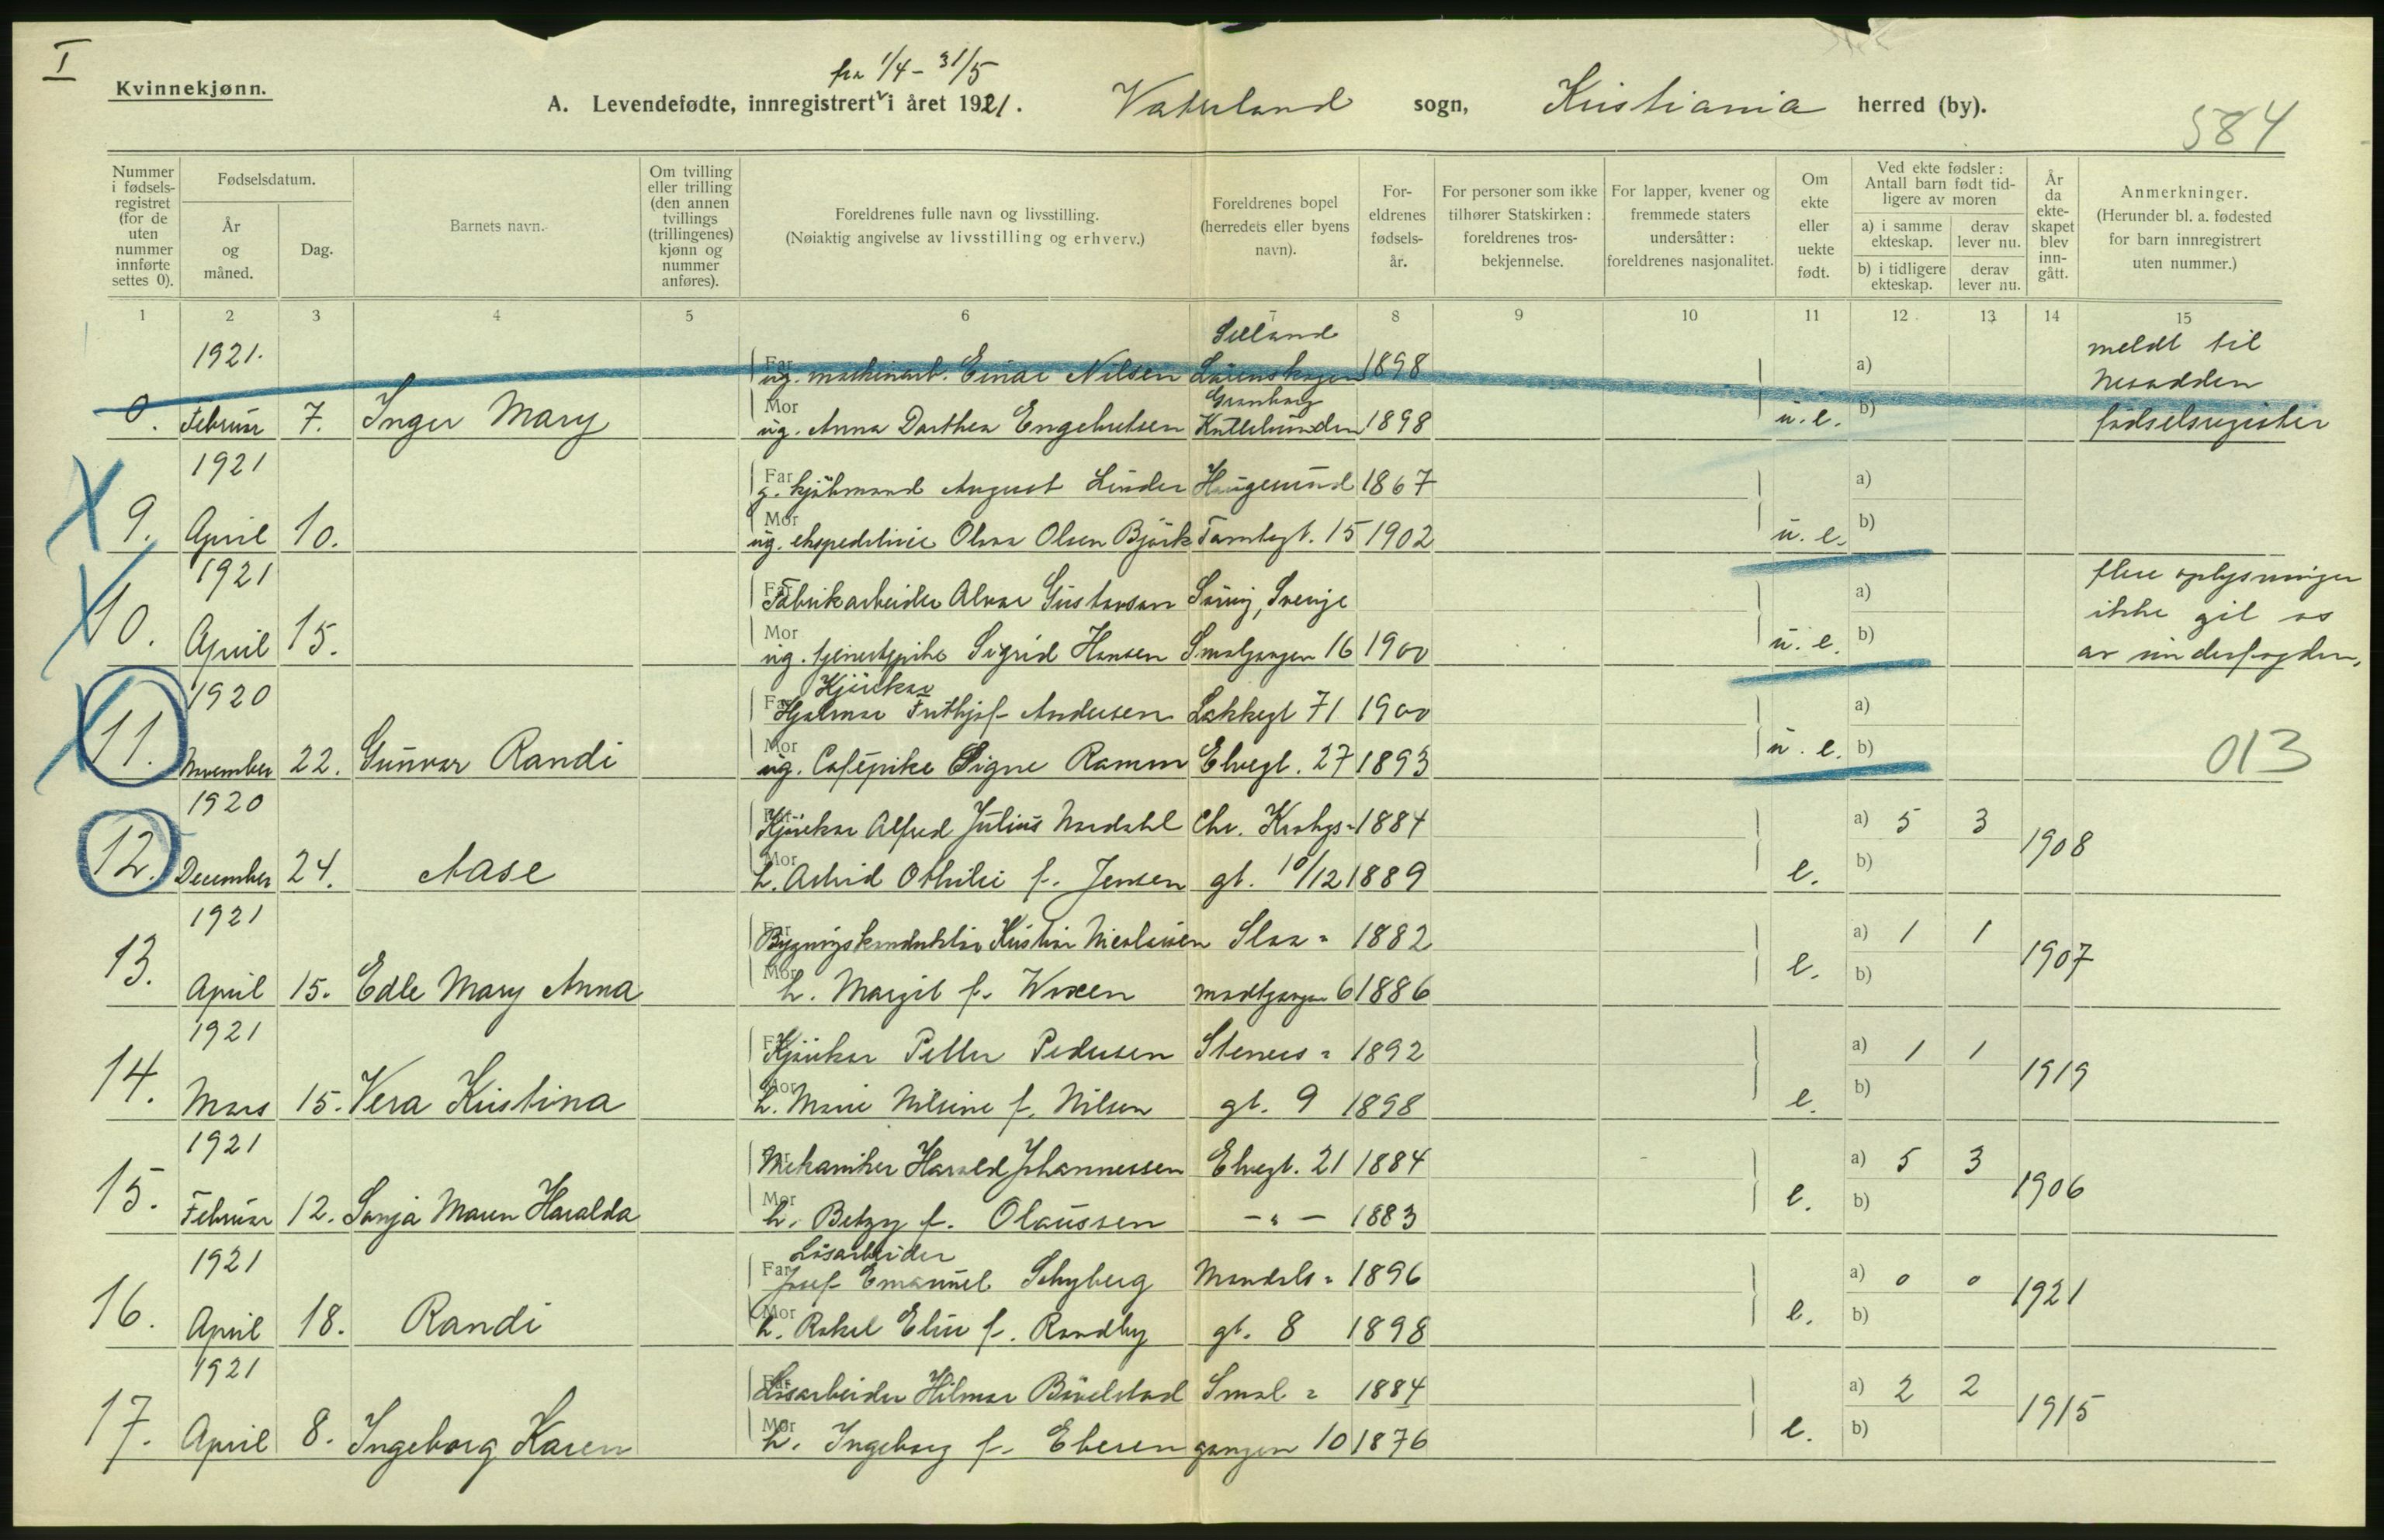 I
Kvinnekjønn.
fra 1/4 - 31/5
A. Levendefødte, innregistrert i året 1921. Vaterland sogn, Kristiania herred (by).
584
Nummer i fødsels-registret (for de uten nummer innførte settes 0).
Fødselsdatum.
År og måned.
Dag.
Barnets navn.
Om tvilling eller trilling (den annen tvillings (trillingenes) kjønn og nummer anføres).
Foreldrenes fulle navn og livsstilling.
(Nøiaktig angivelse av livsstilling og erhverv.)
Foreldrenes bopel (herredets eller byens navn).
For-eldrenes fødsels-år.
For personer som ikke tilhører Statskirken: foreldrenes tros-bekjennelse.
For lapper, kvener og fremmede staters undersåtter: foreldrenes nasjonalitet.
Om ekte eller uekte født.
Ved ekte fødsler: Antall barn født tid-ligere av moren
a) i samme ekteskap.
derav lever nu.
b) i tidligere ekteskap.
derav lever nu.
År da ekte-skapet blev inn-gått.
Anmerkninger.
(Herunder bl. a. fødested for barn innregistrert uten nummer.)
1 2 3 4 5 6 7 8 9 10 11 12 13 14 15
1921.
Far ug. maskinarb. Einar Nilsen 1898 a)
meldt til
Nesodden
0. Februar 7. Inger Mary
Mor ug. Anna Dorthea Engebretsen 1898 u. e. b)
fødselsregister
1921
Far g. kjøbmand August Linder Haugesund 1867 a)
9. April 10.
Mor ug. ekspeditrice Olsen Bjørk Tomtegt. 15 1902 u. e. b)
1921
Far Fabrikarbeider Alvar Gustavson Sverige a)
flere oplysninger
ikke git os
10. April 15.
Mor ug. tjenestepike Sigrid Hansen Smalgangen 16 1900 u. e. b)
av
1920
Kjørekar
Far Hjalmar Frithjof Andersen Lakkegt 71 1900 a)
11. November 22. Gunvor Randi
Mor ug. Cafépike Signe Ramm Elvegt. 27 1893 u. e. b)
013
1920
Far Kjørekar Alfred Julius Nordahl Chr. Krohgs- 1884 a) 5 3
12. December 24. Aase
Mor h. Astrid Othilie f. Jensen gt. 10/12 1889 e. b)
1908
1921
Far Bygningskonduktør Kristian Nicolaisen Slaa- 1882 a) 1 1
13. April 15. Edle Mary Anna
Mor h. Margit f. motgangen 6 1886 e. b)
1907
1921
Far Kjørekar Petter Pedersen Steners- 1892 a) 1 1
14. Mars 15. Vera Kristina
Mor h. Marie Nilsine f. Nilsen gt. 9 1898 e. b)
1919
1921
Far Mekaniker Harald Johannessen Elvegt. 21 1884 a) 5 3
15. Februar 12. Sonja Maren Haralda
Mor h. Betzy f. Olaussen - " - 1883 e. b)
1906
1921
Løsarbeider
Far Josef Emanuel Schyberg Mandals- 1896 a) 0 0
16. April 18. Randi
Mor h. Rakel Elise f. Randby gt. 8 1898 e. b)
1921
1921
Far Løsarbeider Hilmar Bøvelstad Smal- 1884 a) 2 2
17. April 8. Ingeborg Karen
Mor h. Ingeborg f. Ebesen gangen 10 1876 e. b)
1915